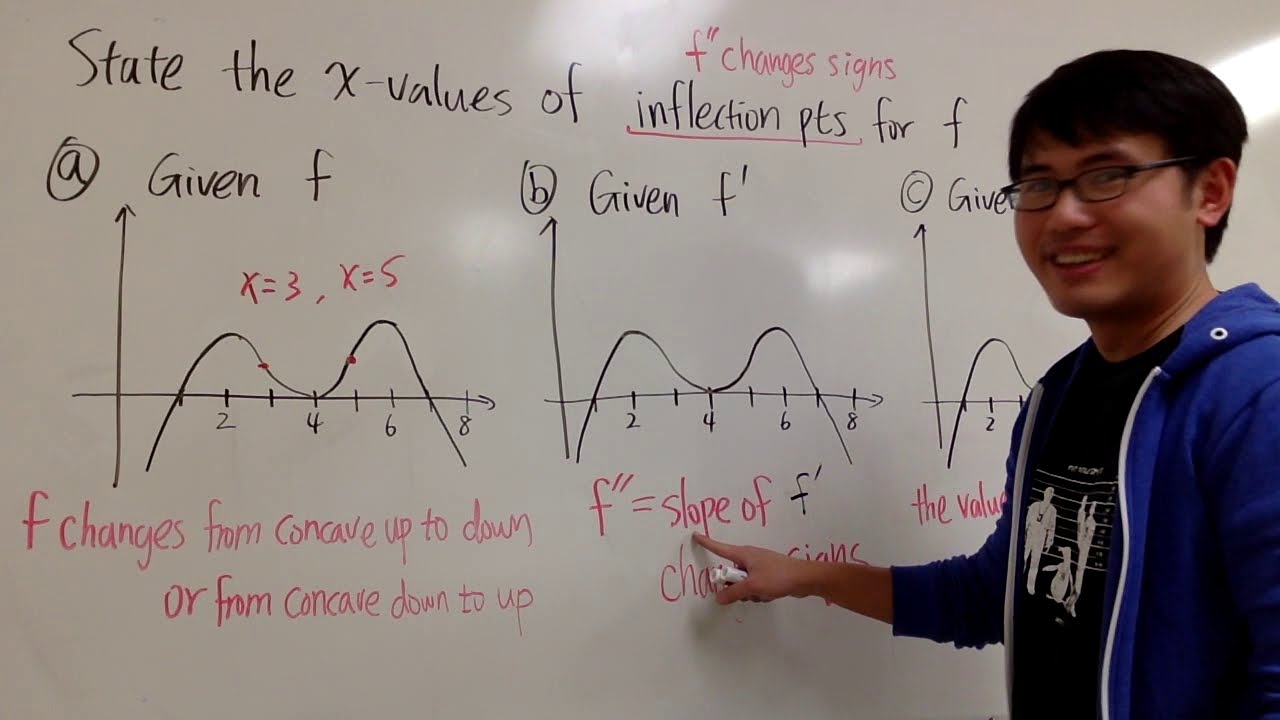 f" changes signs
State the x-values of inflection pts for f
ⓐ Given f
x=3, x=5
2 4 6 8
f changes from concave up to down
or from concave down to up
ⓑ Given f'
2 4 6 8
f" = slope of f'
signs
ⓒ
2
the